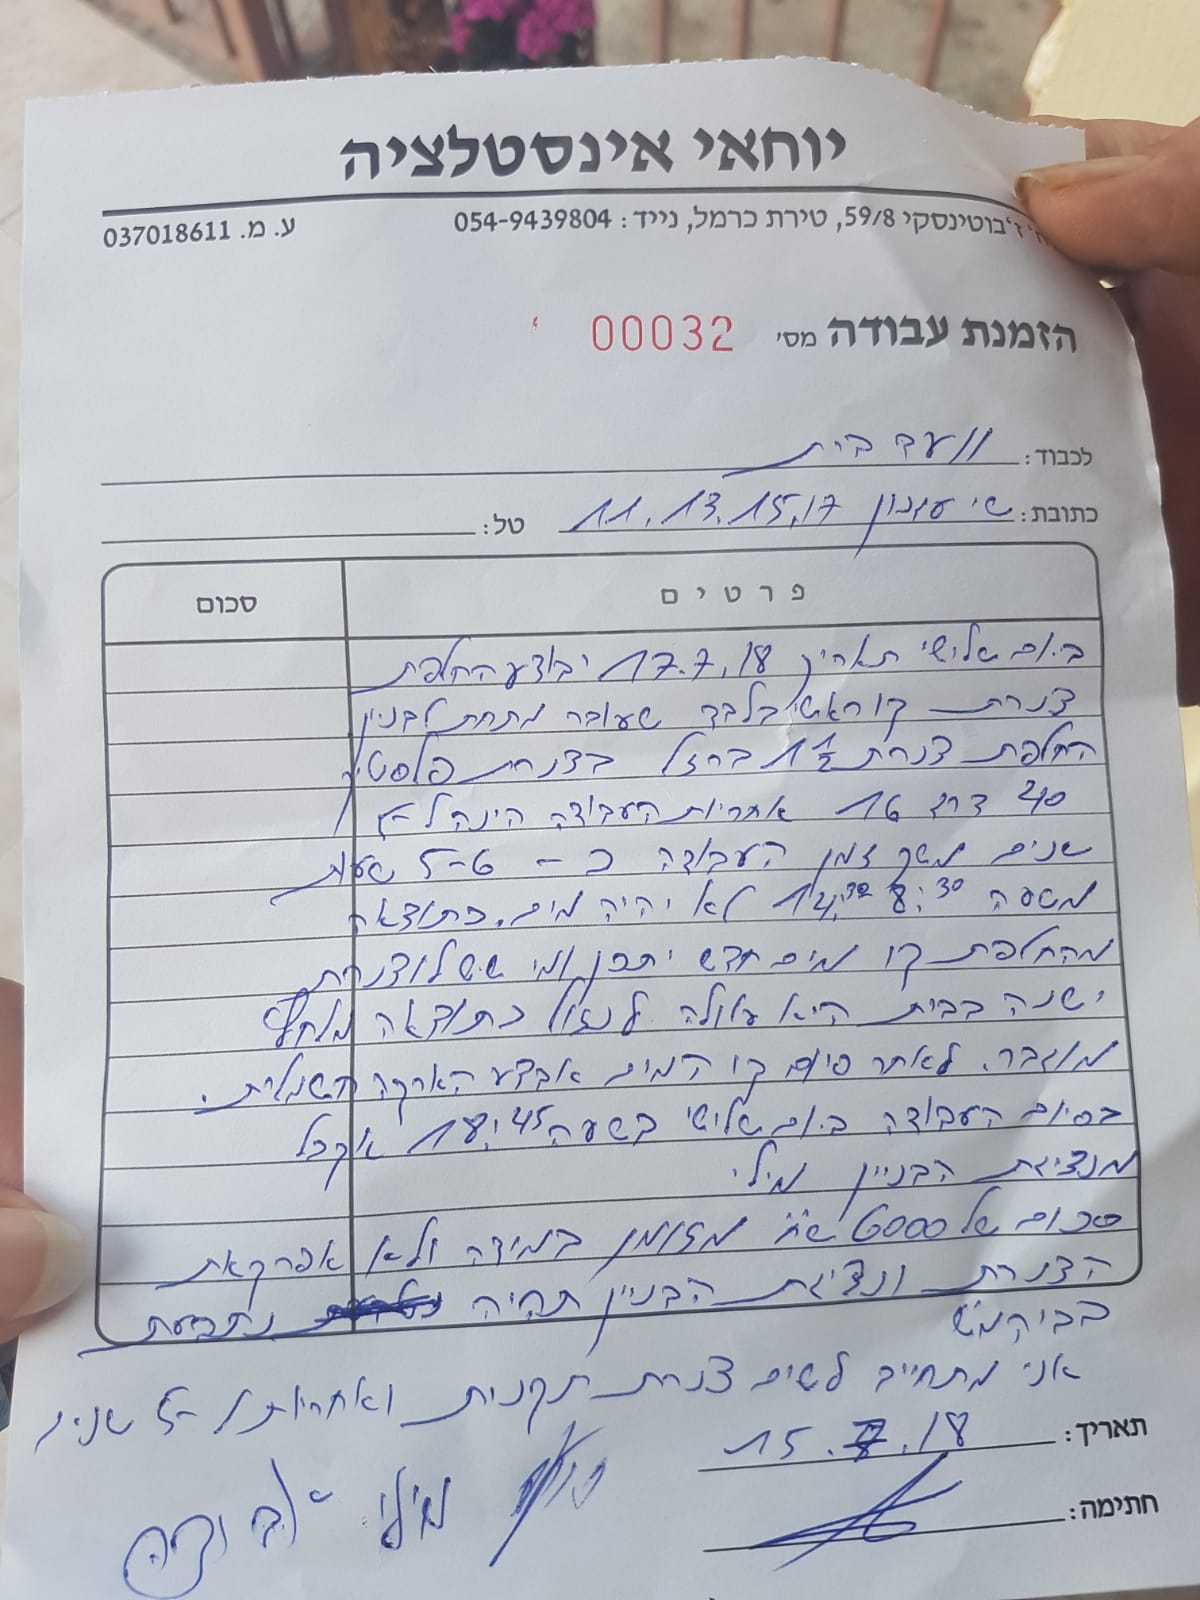 יוחאי אינסטלציה
ז'בוטינסקי 59/8, טירת כרמל, נייד: 054-9439804 ע. מ. 037018611
הזמנת עבודה מס' 00032
לכבוד: וועד בית
כתובת: ש"י עגנון 11.13.15.17 טל:
פרטים סכום
ביום שלישי תאריך 17.7.18 יבוצע החלפת
צנרת קו ראשי בלבד שעובר מתחת לבניין
החלפת צנרת 1½ ברזל בצנרת פלסטיק
40 דרג 16 אחריות העבודה הינה ל-5
שנים משך זמן העבודה כ - 5-6 שעות
משעה 8:30 14:30 לא יהיה מים. כתוצאה
מהחלפת קו מים חדש יתכן ומי שיש לו צנרת
ישנה בבית היא עלולה לנזול כתוצאה מלחץ
מוגבר. לאחר סיום קו המים אבצע הארקה חשמלית.
בסיום העבודה ביום שלישי בשעה 18:45 אקבל
מנציגת הבניין מילי
סכום של 6000 ש"ח מזומן במידה ולא אפרק את
הצנרת ונציגת הבניין תהיה נתבעת
בביהמ"ש
אני מתחייב לשים צנרת תקנית ואחריות ל-5 שנים
תאריך: 15.7.18
חתימה:
מילי